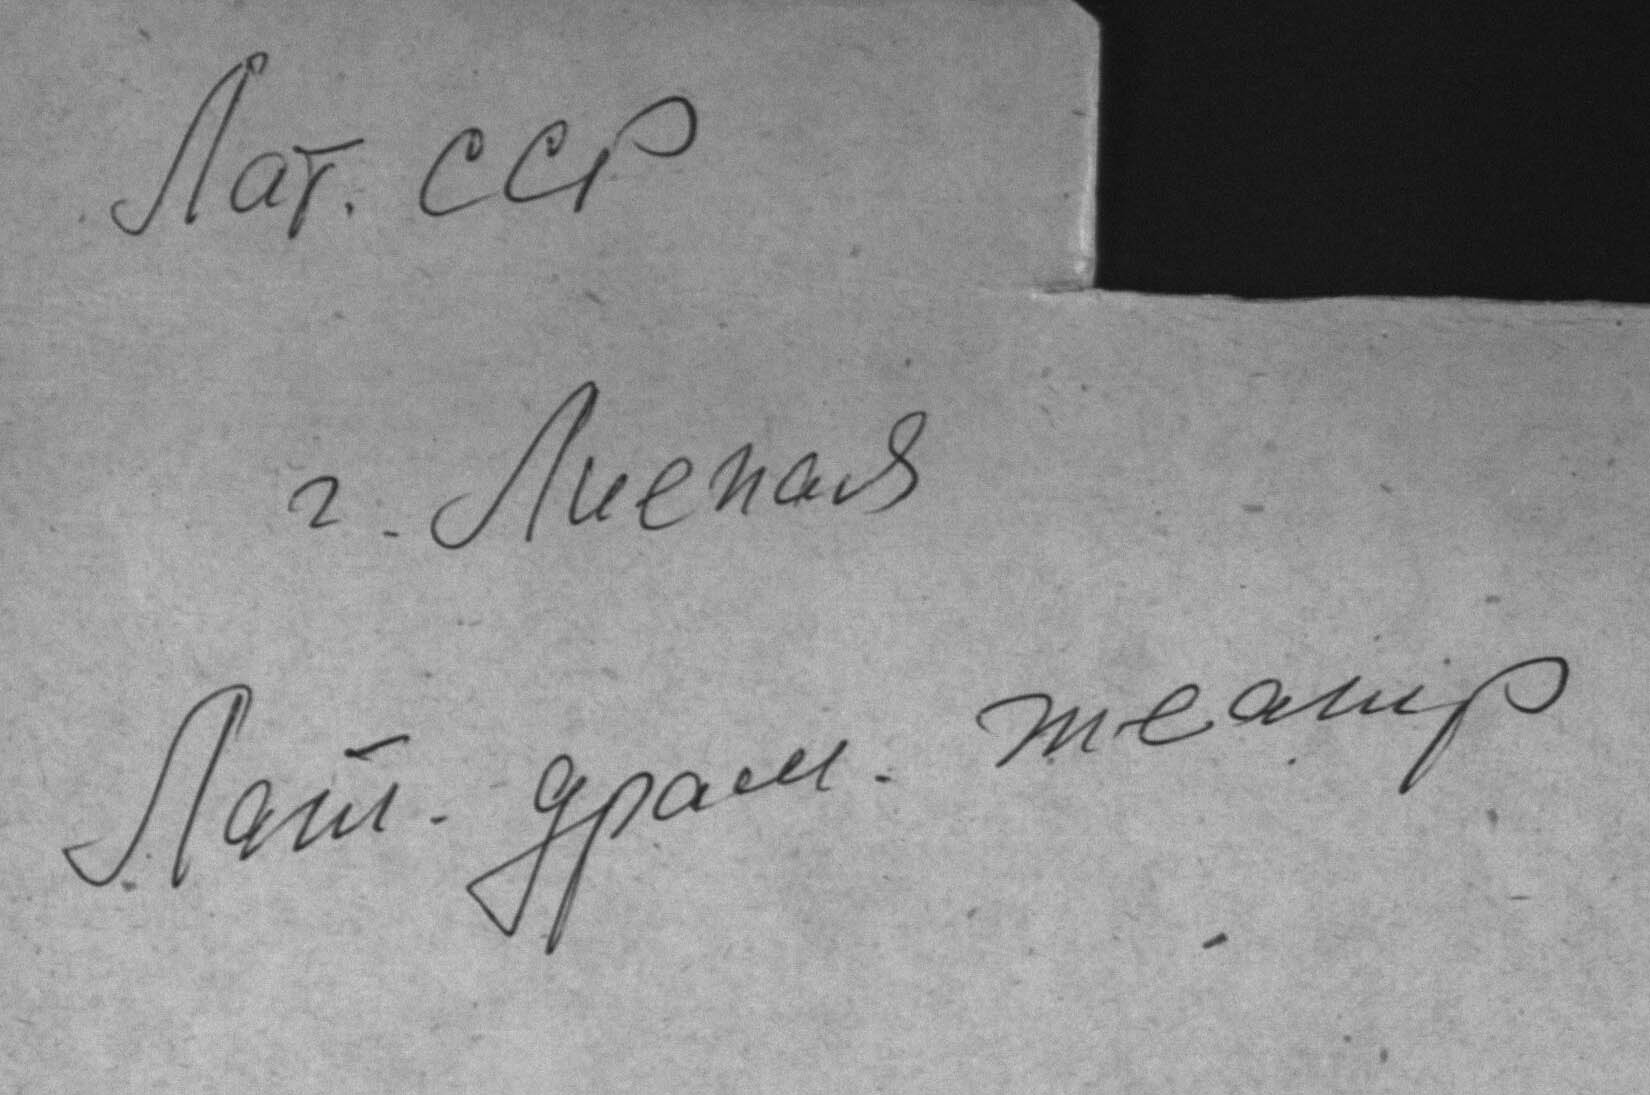 Лат. ССР
г. Лиепая
Лат. драм. театр